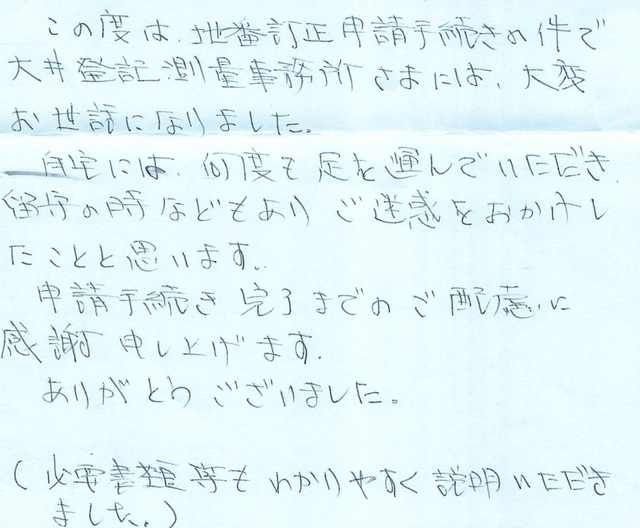 この度は、地番訂正申請手続きの件で
大井登記測量事務所さまには、大変
お世話になりました。
自宅には、何度も足を運んでいただき、
留守の時などもあり ご迷惑をおかけし
たことと思います。
申請手続き 完了までの ご配慮に
感謝申し上げます。
ありがとう ございました。
(必要書類等も わかりやすく 説明いただき
ました。)